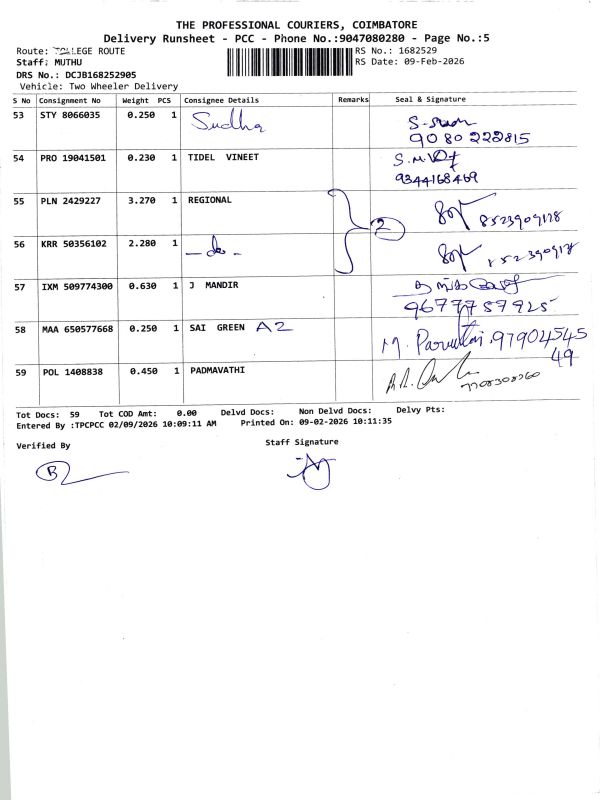 THE PROFESSIONAL COURIERS, COIMBATORE
Delivery Runsheet - PCC - Phone No.:9047080280 - Page No.:5
Route: COLLEGE ROUTE RS No.: 1682529
Staff: MUTHU RS Date: 09-Feb-2026
DRS No.: DCJB168252905
Vehicle: Two Wheeler Delivery
S No Consignment No Weight PCS Consignee Details Remarks Seal & Signature
53 STY 8066035 0.250 1 Sudha
9080222815
54 PRO 19041501 0.230 1 TIDEL VINEET
9344168469
55 PLN 2429227 3.270 1 REGIONAL 8523909178
2
56 KRR 50356102 2.280 1 -do-
57 IXM 509774300 0.630 1 J MANDIR
9677757925
58 MAA 650577668 0.250 1 SAI GREEN A2
M. 97904545
49
59 POL 1408838 0.450 1 PADMAVATHI
7708308360
Tot Docs: 59 Tot COD Amt: 0.00 Delvd Docs: Non Delvd Docs: Delvy Pts:
Entered By :TPCPCC 02/09/2026 10:09:11 AM Printed On: 09-02-2026 10:11:35
Verified By Staff Signature
B